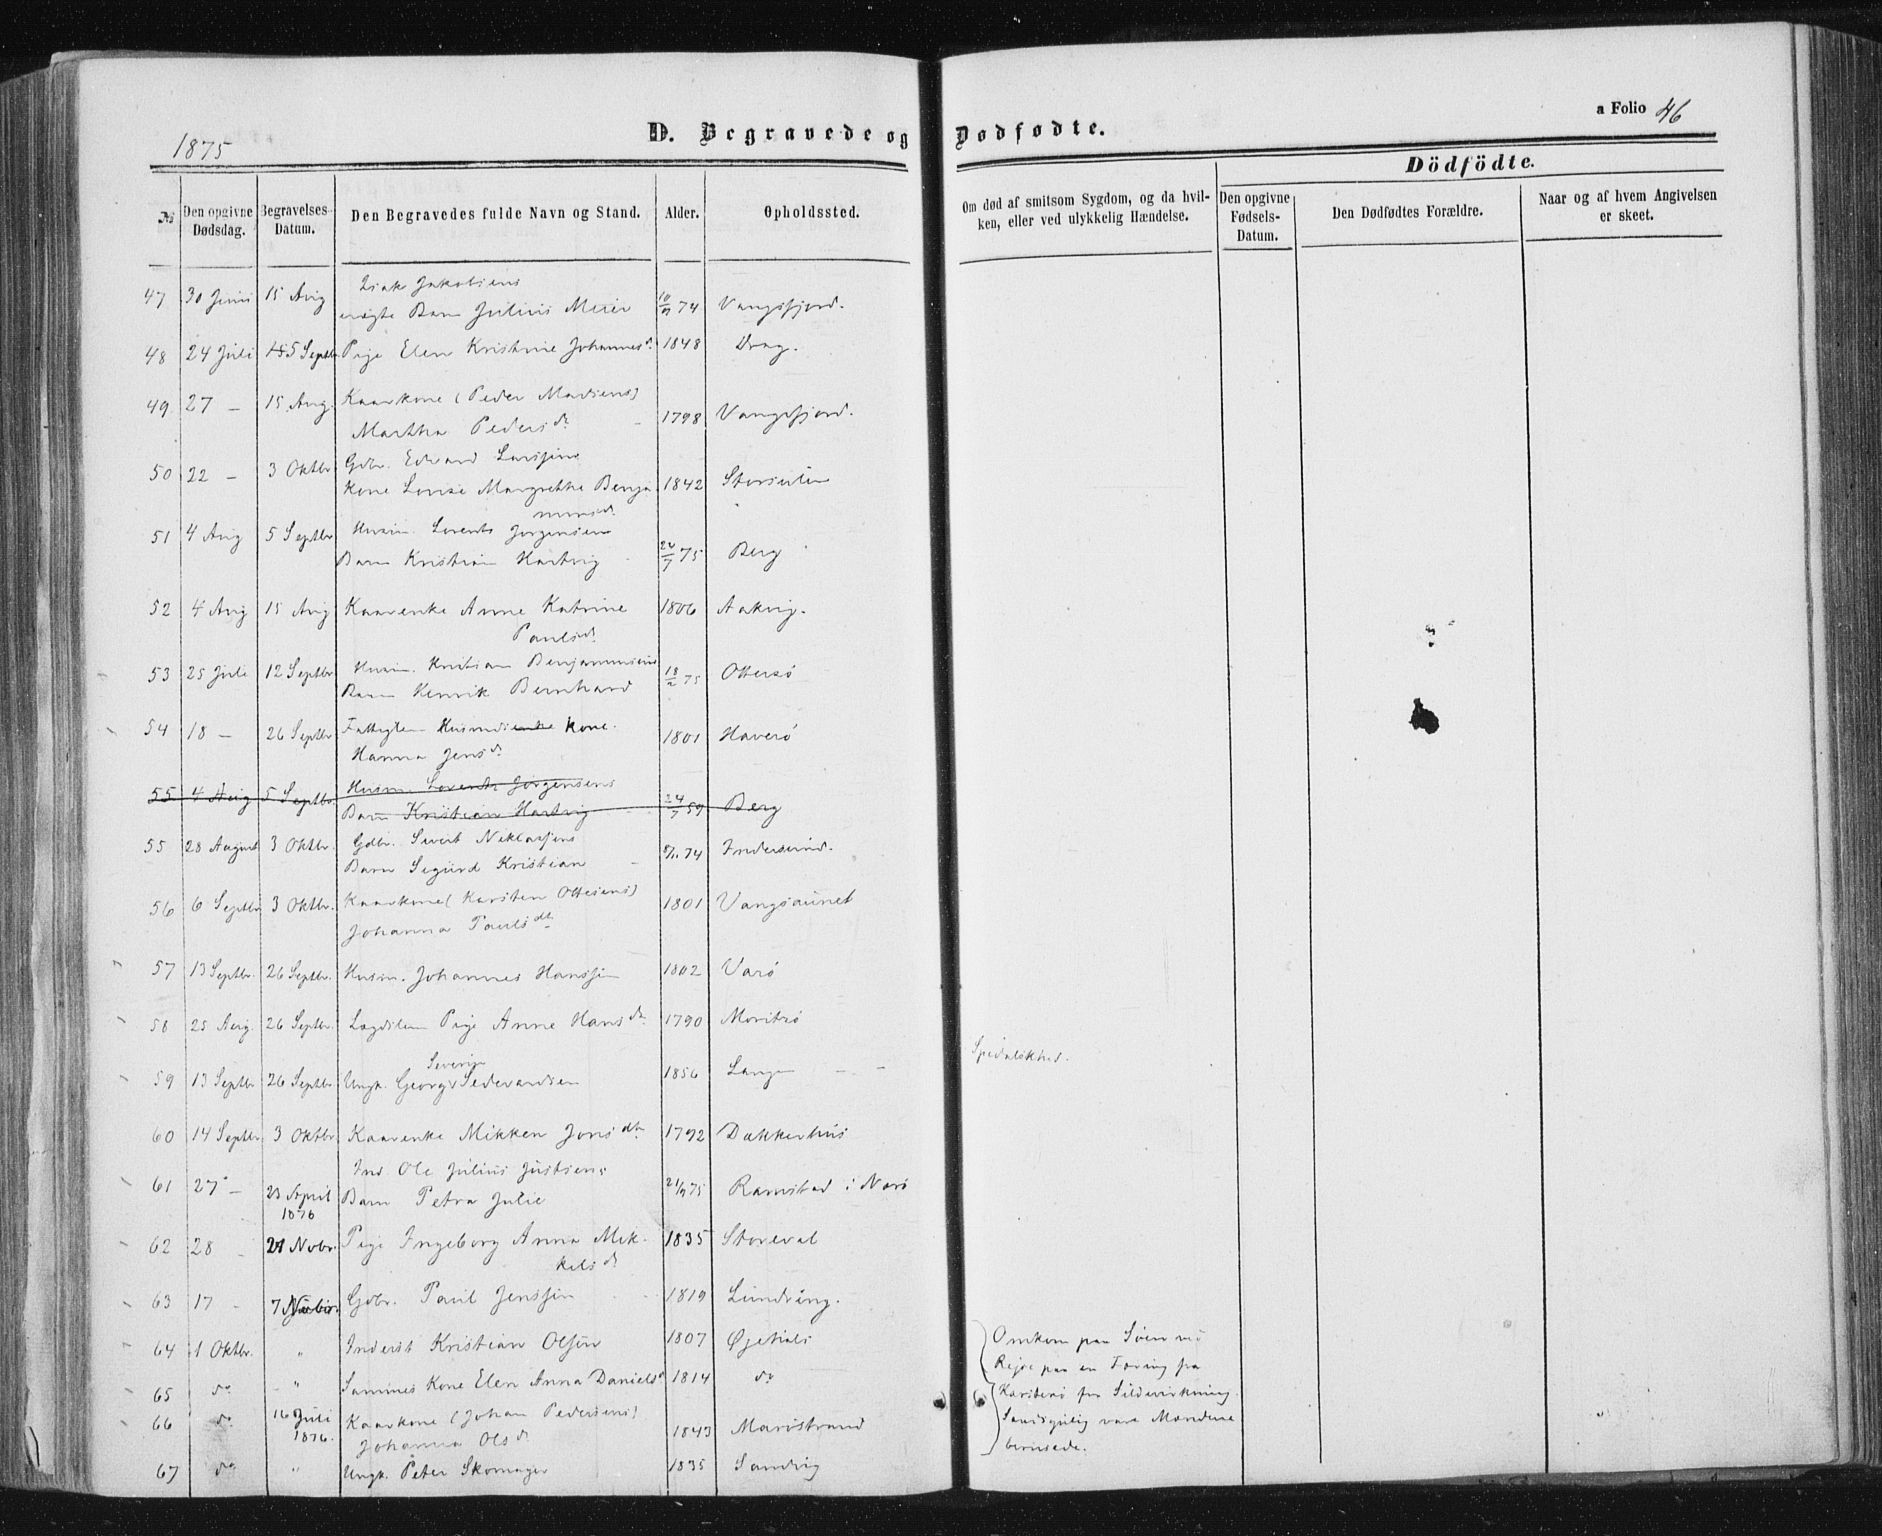 1875
D. Begravede og Dødfødte.
a Folio 46
Dödfödte.
№
Den opgivne Dødsdag.
Begravelses-Datum.
Den Begravedes fulde Navn og Stand.
Alder.
Opholdssted.
Om død af smitsom Sygdom, og da hvil-
ken, eller ved ulykkelig Hændelse.
Den opgivne Fødsels-Datum.
Den Dødfødtes Forældre.
Naar og af hvem Angivelsen
er skeet.
Isak Jakobsens
47 30 Juni 15 Aug ægte Barn Julius Meier 74 Vangsfjord.
48 24 Juli 5 Septbr Pige Elen Kristine Johannesd. 1848 Drag.
49 27 — 15 Aug. Kaarkone (Peder Madsens)
Martha Pedersd. 1798 Vangsfjord.
50 22 — 3 Oktbr Gdbr. Edvard Larssens
Kone Lovise Margrethe Benja 1842
minsd.
51 4 Aug 5 Septbr Husm. Lorents Jørgensens
Barn Kristian Hartvig 24/7 75 Berg
52 4 Aug 15 Aug Kaarenke Anne Katrine 1806 Aakvig.
Paulsd.
53 25 Juli 12 Septbr Husm. Kristian Benjaminsens
Barn Henrik Bernhard 18/2 75 Ottersø
54 18 — 26 Septbr Fattiglem Husmdsenke Kone.
Hanna Jensd. 1801 Haverø
55 4 Aug 5 Septbr. Husm. Lorents Jørgensens
Barn Kristian Hartvig 24/7 59 Berg
55 28 August 3 Oktbr. Gdbr. Sivert Niklassens
Barn Sigurd Kristian 74 Indersund.
56 6 Septbr 3 Oktbr. Kaarkone (Karsten Ottesens) 1801 Vangsaunet
Johanna Paulsdt.
57 13 Septbr. 26 Septbr. Husm. Johannes Hanssen 1802 Varø
58 25 Aug. 26 Septbr. Lægdslem Pige Anne Hansd. 1790
Severin
59 13 Septbr 26 Septbr Ungk. Georg Sedevardsen 1856 Spedalskhed.
60 14 Septbr 3 Oktbr Kaarenke Mikken Jonsdt. 1792 Dækkerhus
Ind. Ole Julius Justsens
61 27 — 23 April Barn Petra Julie 75 Ramstad i Nærø
1876
62 28 — 21 Novbr. Pige Ingeborg Anna Mik- 1835 Storeval
kelsd.
63 17 — 7 Novbr. Gdbr. Paul Jenssen 1819 Lundring.
64 1 Oktbr. " Inderst Kristian Olsen 1807 Omkom paa Søen ved
Rejse paa en Færing fra
65 do " Sammes Kone Elen Anna Danielsd. 1814 do fra Sildevirkning.
66 do 16 Juli Kaarkone (Johan Pedersens) Sandsynlig vare Mændene
1876. Johanna Olsd. 1843 Marøstrand berusede.
67 do " Ungk. Peter Skomager 1835 Sandvig